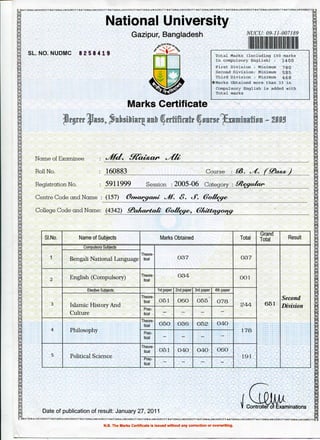 National University
Gazipur, Bangladesh
NUCU: 09-11-007189
SL. NO. NUDMC 0258419
Total Marks (Including 100 marks
in compulsory English) : 1400
First Division : Minimum 780
Second Division: Minimum 585
Third Division : Minimum
Marks Obtained more than 33 in
Compulsory English is added with
Total marks
Marks Certificate
Degree Pass, Subsidiary and Certificate Course Examination - 2009
Name of Examinee : Md. Kaisar Ali
Roll No. : 160883 Course : B. A. (Pass)
Registration No. : 5911999 Session : 2005-06 Category : Regular
Centre Code and Name : (157) Omargani M. E. S. College
College Code and Name: (4342) Pahartali College, Chittagong
Sl.No. Name of Subjects Marks Obtained Total Grand Total Result
Compulsory Subjects
1 Bengali National Language Theoretical 037 037
2 English (Compulsory) Theoretical 034 001
Elective Subjects 1st paper 2nd paper 3rd paper 4th paper
3 Islamic History And Culture Theoretical 051 060 055 078 244 651 Second Division
Practical - - - -
4 Philosophy Theoretical 050 036 052 040 178
Practical - - - -
5 Political Science Theoretical 051 040 040 060 191
Practical - - - -
Controller of Examinations
Date of publication of result: January 27, 2011
N.B. The Marks Certificate is issued without any correction or overwriting.